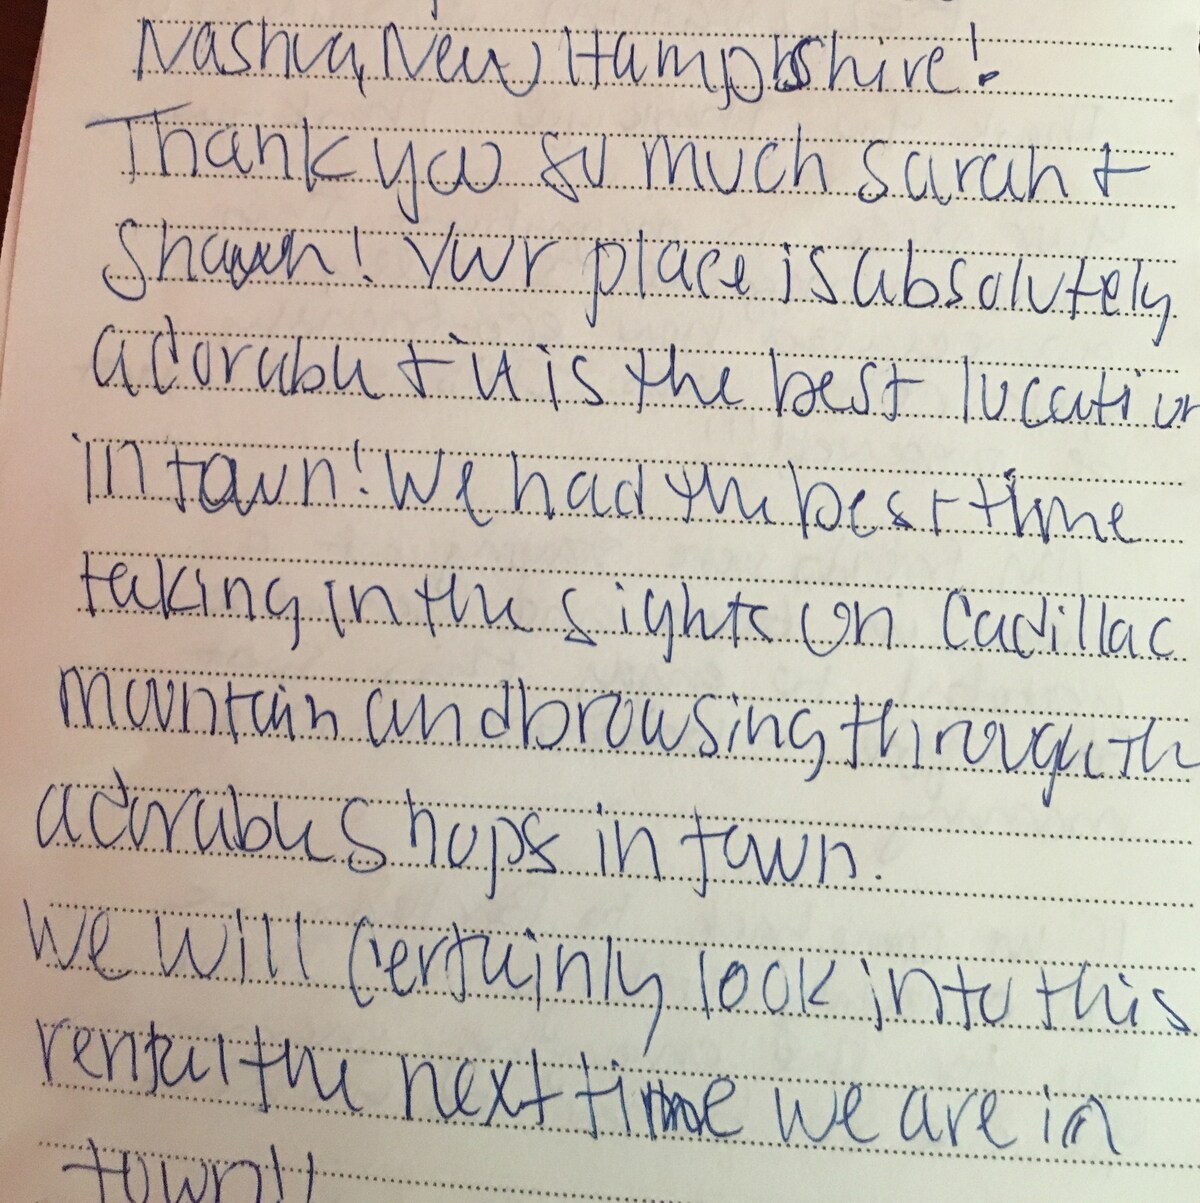 Nashua, New Hampshire!
Thank you so much Sarah +
Shawn! Your place is absolutely
adorable + it is the best location
in town! We had the best time
taking in the sights on Cadillac
mountain and browsing through th
adorable shops in town.
We will certainly look into this
rental the next time we are in
town!!